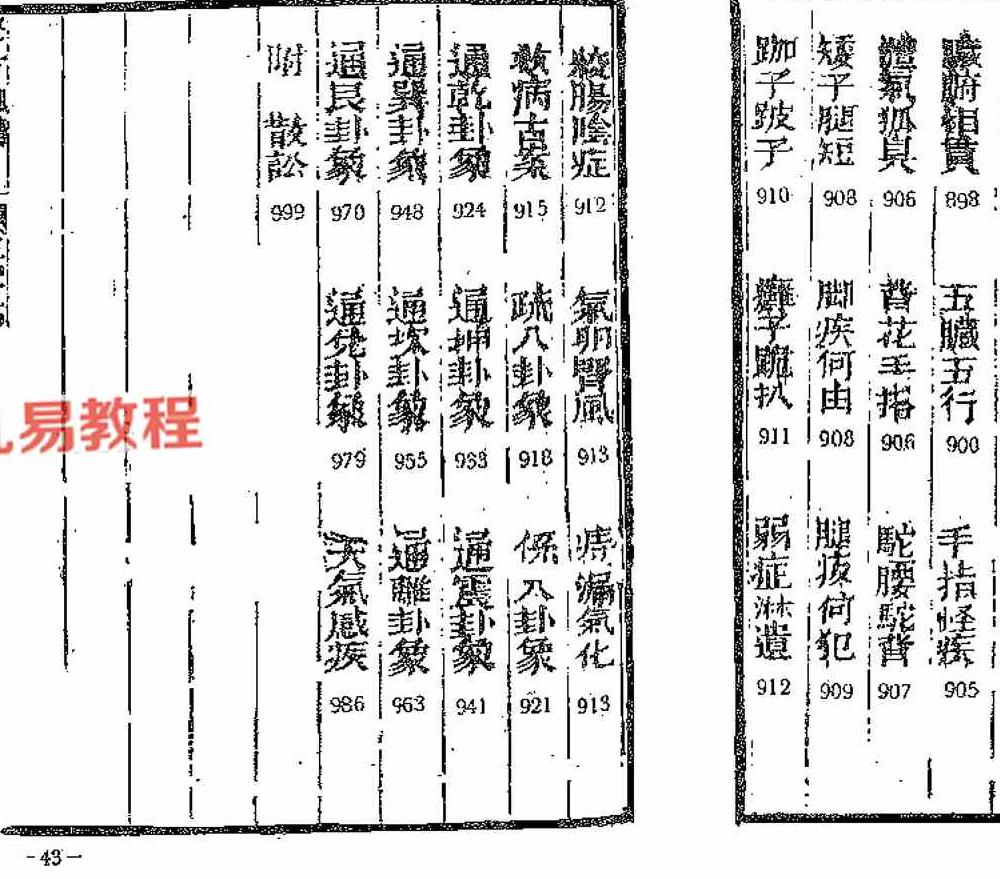 臟腑相貫 898
五臟五行 900
手指怪疾 905
體氣狐臭 906
背花手指 906
駝腰駝背 907
矮子腿短 908
脚疾何由 908
腿疲何犯 909
跏子跛子 910
癱子跪扒 911
弱症淋遺 912
絞腸陰症 912
氣卵腎風 913
痔漏氣化 913
救病古案 915
疏八卦象 918
係八卦象 921
通乾卦象 924
通坤卦象 933
通震卦象 941
通巽卦象 948
通坎卦象 955
通離卦象 963
通艮卦象 970
通兌卦象 979
天氣感疾 986
附 散訟 999
易教程
-43-